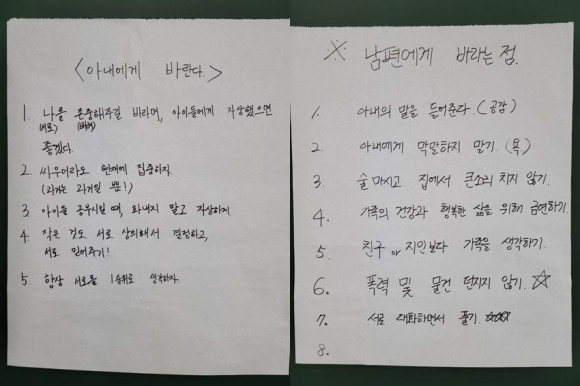 <아내에게 바란다.>
1. 나를 존중해주길 바라며, 아이들에게 자상했으면
(서로) (배려)
좋겠다.
2. 싸우더라도 현재에 집중하자.
(과거는 과거일 뿐!)
3. 아이들 공부시킬 때, 화내지 말고 자상하게
4. 작은 것도 서로 상의해서 결정하고,
서로 믿어주기!
5. 항상 서로를 1순위로 생각하자.
※ 남편에게 바라는 점.
1. 아내의 말을 들어준다. (공감)
2 아내에게 막말하지 말기. (욕)
3. 술 마시고 집에서 큰소리 치지 않기.
4. 가족의 건강과 행복한 삶을 위해 금연하기.
5. 친구 or 지인보다 가족을 생각하기.
6. 폭력 및 물건 던지지 않기. ☆
7. 서로 대화하면서 풀기. ☆☆☆
8.